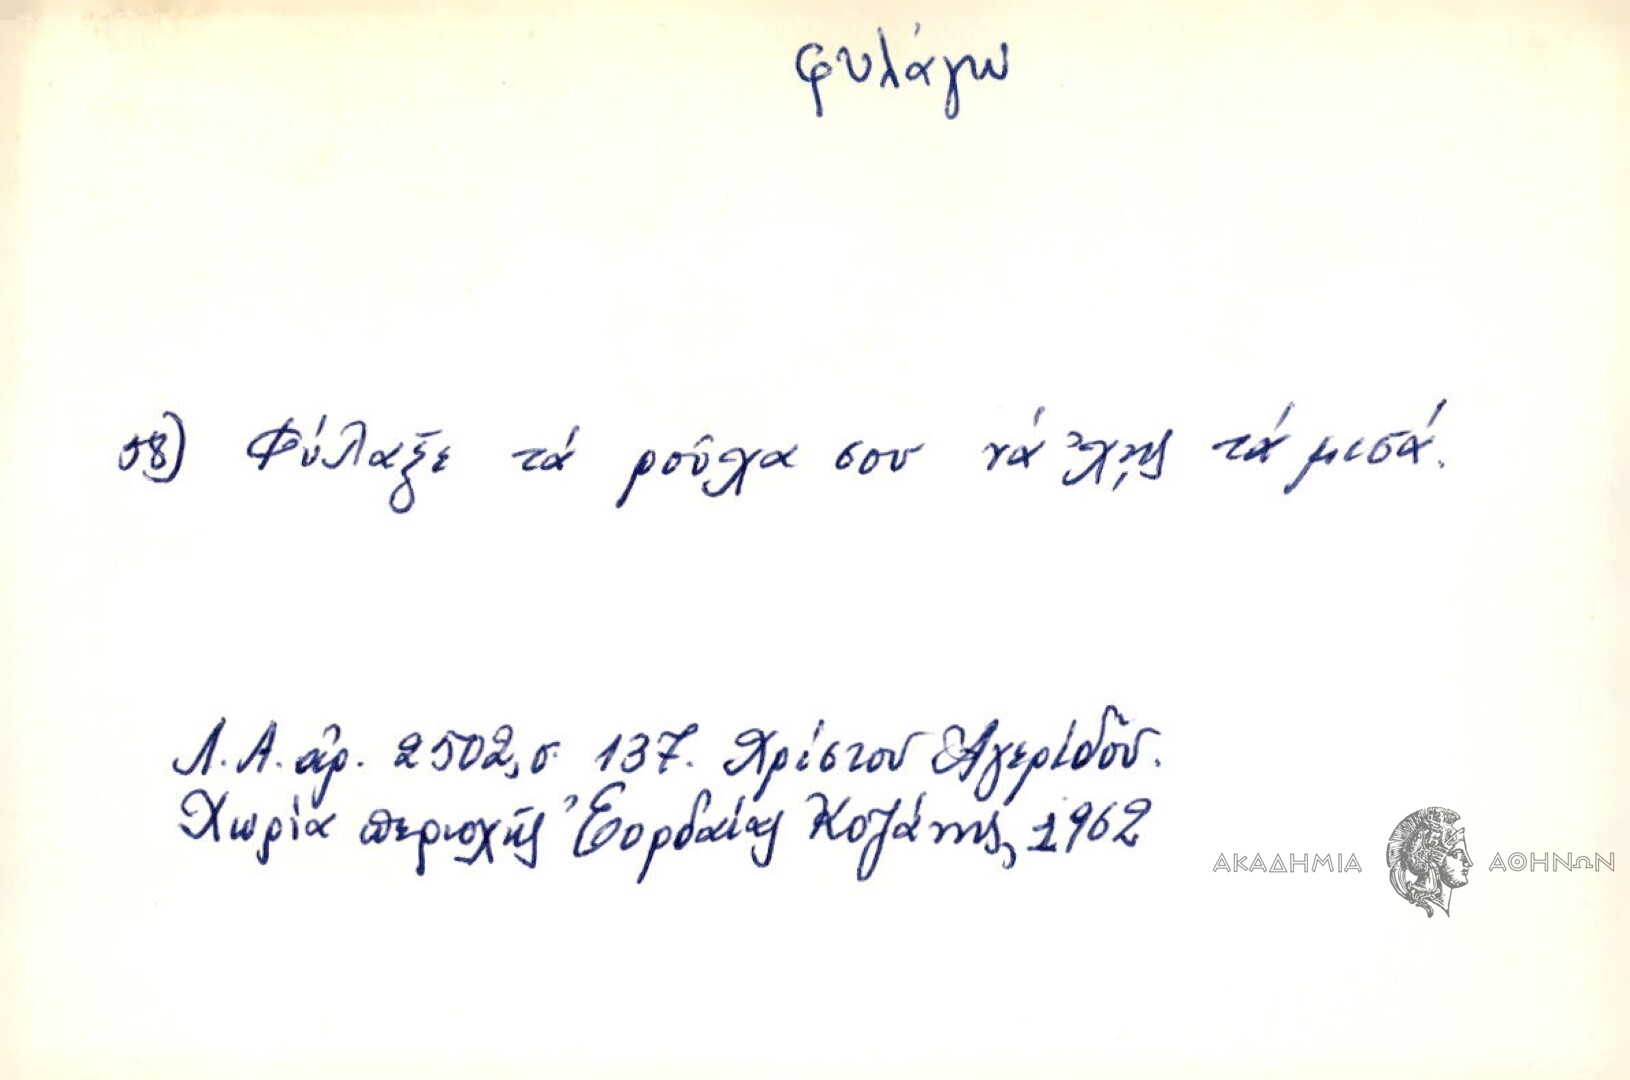 φυλάγω
58) Φύλαξε τά ροῦχα σου νά ’χῃς τά μισά.
Λ.Α. ἀρ. 2502, σ. 137. Χρίστου Ἀγερίδου.
Χωρία περιοχῆς Ἐορδαίας Κοζάνης, 1962
ΑΚΑΔΗΜΙΑ ΑΘΗΝΩΝ